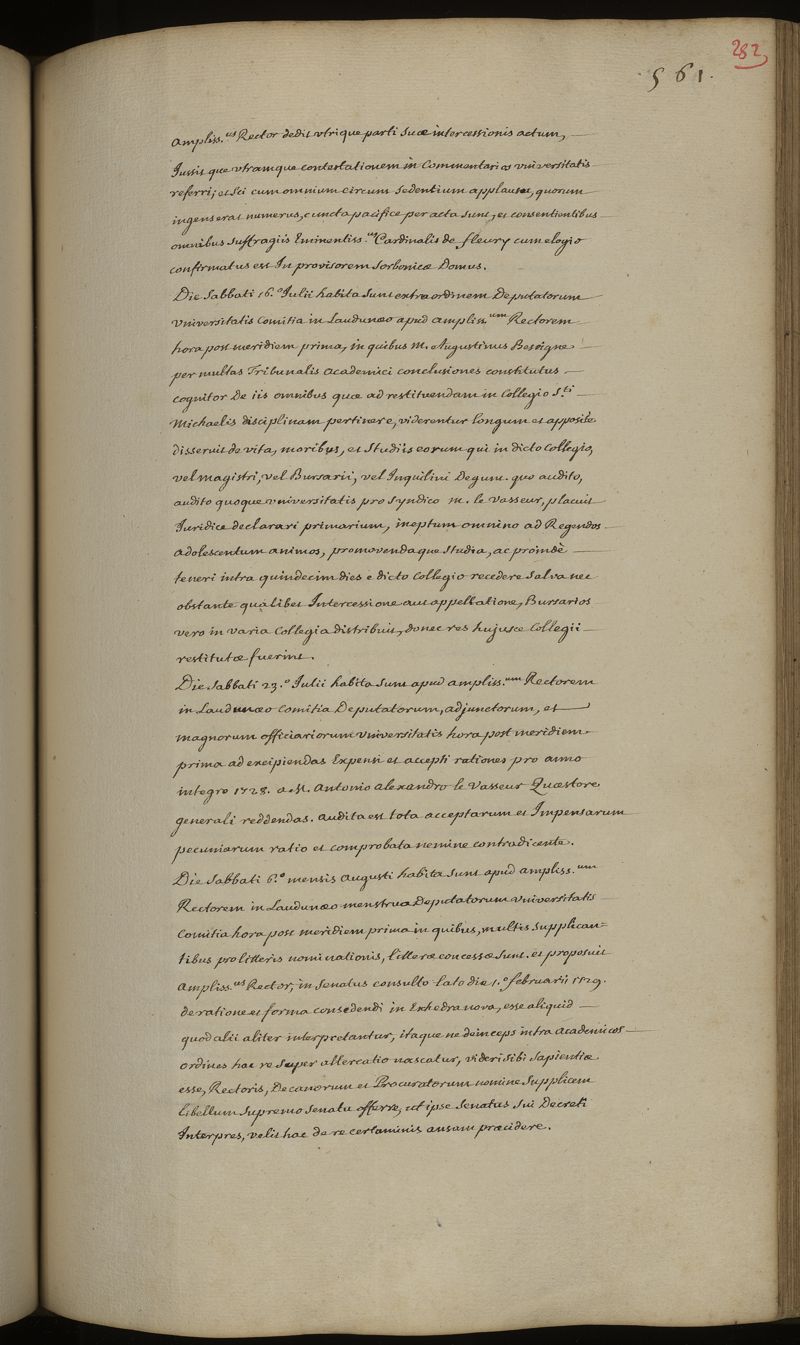 282
561.
Ampliss.us Rector dedit utrique parti suæ intercessionis actum,
Jussit que utramque contestationem in Commentarios universitatis
referri; et sci cum omnium circum sedentium applausu, quorum
ingens erat numerus, cuncta pacifice peracta sunt, et consentientibus
omnibus suffragiis Eminentiss.us Cardinalis de fleury cum elogio
confirmatus est In provisorem Sorbonicæ Domus.
Die Sabbati 16.o Julii habita sunt extra ordinem Deputatorum
Universitatis Comitia in Laudunæo apud amplis.um Rectorem
hora post meridiem prima, in quibus M. Augustinus Besoigne
per multas Tribunalis academici conclusiones constitutus
cognitor De iis omnibus quæ ad restituendam in Collegio S.ti
Michaelis disciplinam pertinere, viderentur longum et apposite
disseruit de vita, moribus, et Studiis eorum qui in dicto Collegio,
vel magistri, vel Bursarii, vel Inquilini Degunt. quo audito,
audito quoque universitatis pro Syndico M. le Vasseur, placuit
Juridice declarari primarium, ineptum omnino ad Regendos
adolescentum animos, promovendaque Studia, ac proinde
teneri intra quindecim dies e dicto Collegio recedere salva nec
obstante qualibet Intercessione aut appellatione, Bursarios
vero in varia Collegia distribuit, donec res hujusce Collegii
restitutæ fuerint.
Die Sabbati 23.o Julii habita Sunt apud ampliss.um Rectorem
in Laudunæo Comitia Deputatorum, adjunctorum, et
magnorum officiariorum universitatis hora post meridiem
prima ad excipiendas Expensi et accepti rationes pro anno
integro 1728. a M. Antonio Alexandro le Vasseur Quæstore
generali reddendas. audita est tota acceptarum et Impensarum
pecuniarum ratio et comprobata nemine contradicente.
Die Sabbati 6.o mensis Augusti habita Sunt apud ampliss.um
Rectorem in Laudunæo menstrua Deputatorum Universitatis
Comitia hora post meridiem prima in quibus, multis supplican=
tibus pro litteris nominationis, litteræ concessæ sunt. et proposuit
Ampliss.us Rector, in Senatus consulto lato die 1.o februarii 1729.
de ratione et forma consedendi in Exhedra nova, esse aliquid
quod alii aliter interpretantur, itaque ne deinceps intra academicos
ordines hac re super altercatio nascatur, videri sibi Sapientiæ
esse, Rectoris, Decanorum et Procuratorum nomine Supplicem
libellum Supremo Senatu offerre, ut ipse Senatus sui Decreti
Interpres, velit hac de re certaminis ansam præcidere.